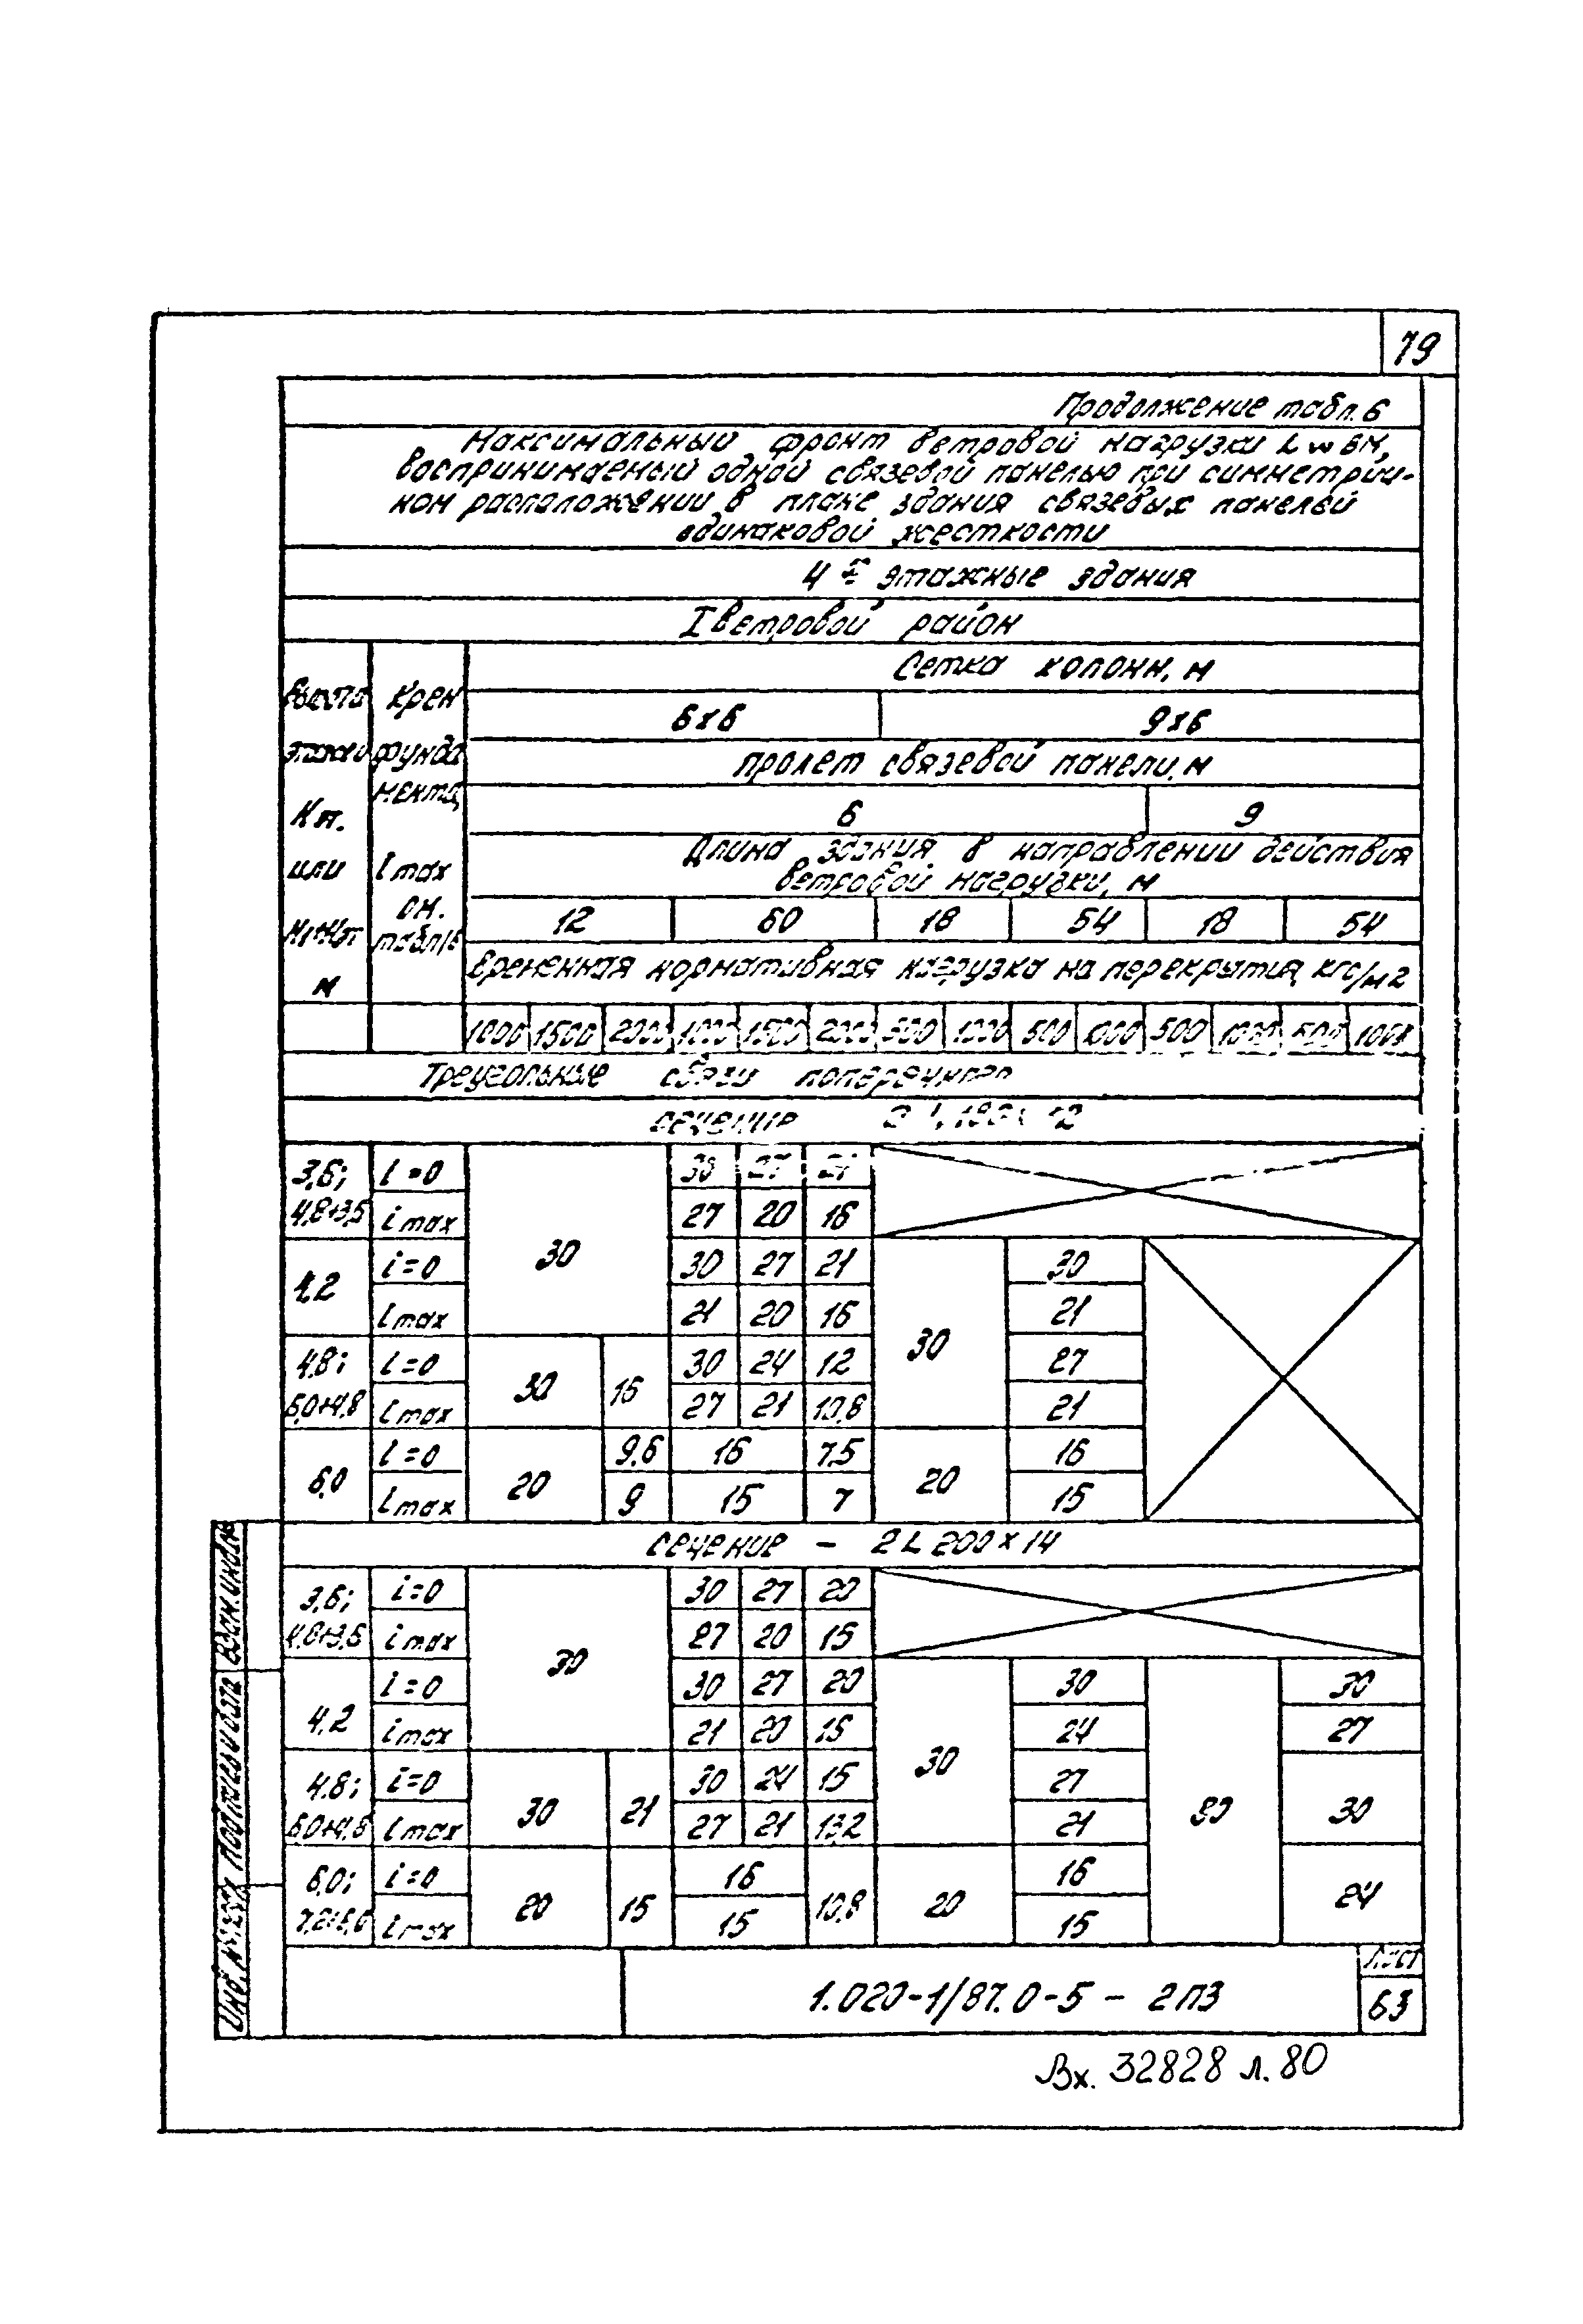 79
Продолжение табл. 6
Максимальный фронт ветровой нагрузки Lw в м,
воспринимаемый одной связевой панелью при симметрич-
ном расположении в плане здания связевых панелей
одинаковой жесткости
4х этажные здания
I ветровой район
Высота этажей Нэт. или Н1+Нэт м
Крен фундамента, imax см. табл.
Сетка колонн, м
6х6 9х6
пролет связевой панели, м
6 9
Длина здания в направлении действия
ветровой нагрузки, м
12 60 18 54 18 54
временная нормативная нагрузка на перекрытия, кгс/м2
1000 1500 2000 1000 1500 2000 500 1000 500 1000 500 1000 500 1000
Треугольные связи поперечного
сечения 2L 180х12
3,6; i=0 30 30 27 21
4,8+3,6 imax 27 20 16
4,2 i=0 30 27 21 30 30
imax 21 20 16 21
4,8; i=0 30 16 30 24 12 27
6,0+4,8 imax 27 21 10,8 21
6,0 i=0 20 9,6 16 7,5 20 16
imax 9 15 7 15
сечение - 2L 200х14
3,6; i=0 30 30 27 20
4,8+3,6 imax 27 20 15
4,2 i=0 30 27 20 30 30 30 30
imax 21 20 15 24 27
4,8; i=0 30 21 30 24 15 27 30
6,0+4,8 imax 27 21 13,2 21
6,0; i=0 20 15 16 10,8 20 16 24
7,2+6,0 imax 15 15
Взам. инв. №
Подпись и дата
Инв. № подл.
1.020-1/87.0-5 - 2ПЗ
Лист
63
Вх. 32828 л. 80